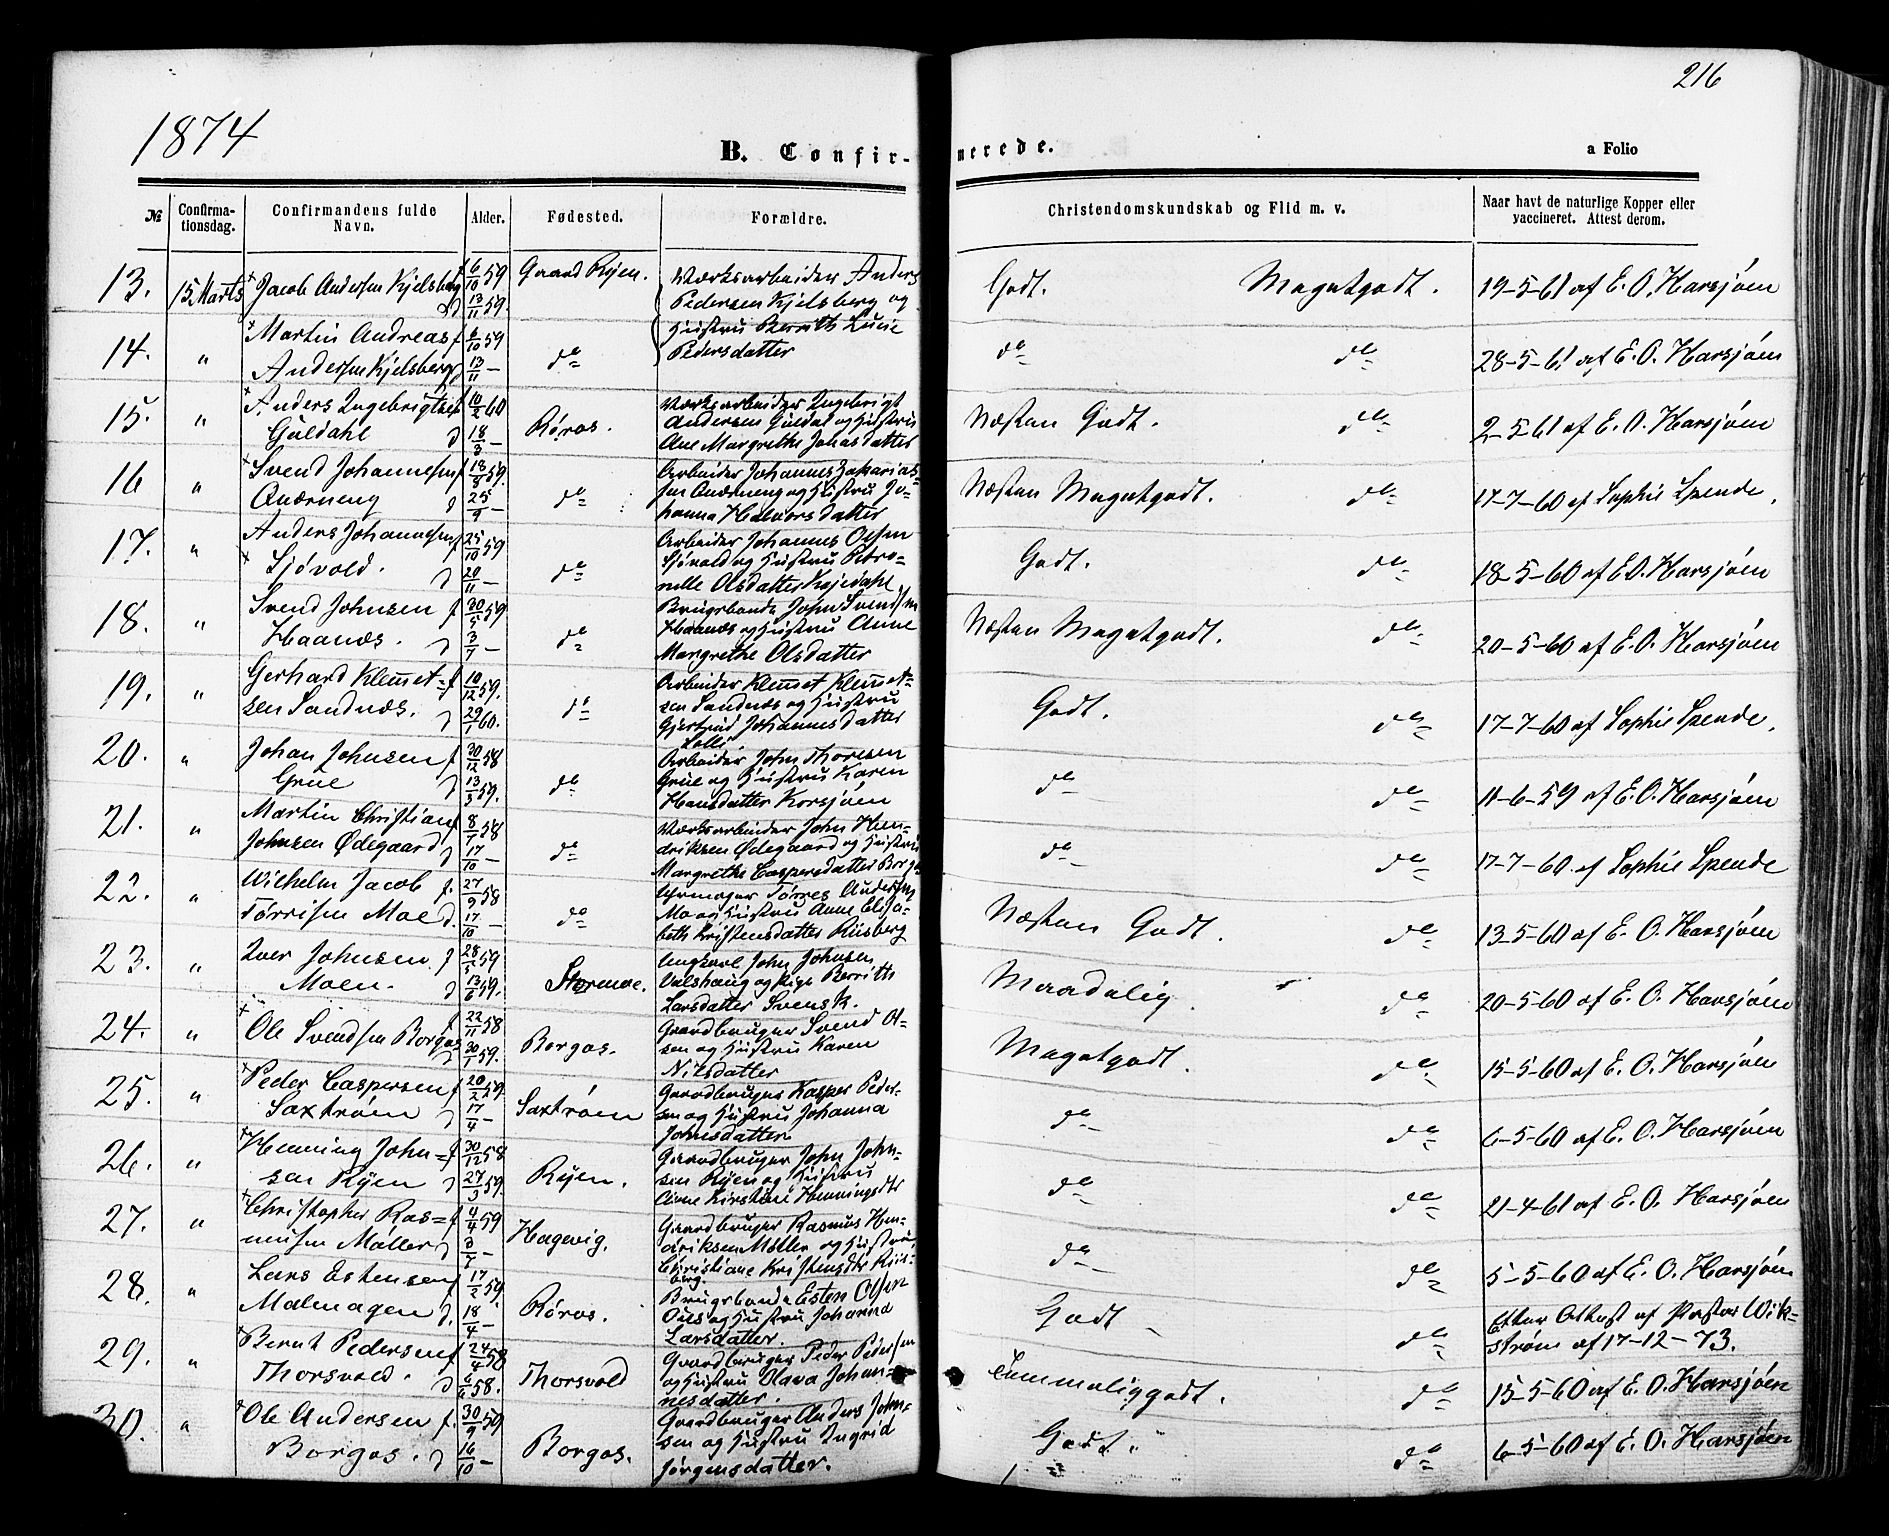 216
1874
B. Confir-
merede.
a Folio
№
Confirma-
tionsdag.
Confirmandens fulde
Navn.
Alder.
Fødested.
Forældre.
Christendomskundskab og Flid m. v.
Naar havt de naturlige Kopper eller
vaccineret. Attest derom.
13. 15 Marts Jacob Andersen Kjelsberg f 6/10 59 Gaard Rÿen. Værksarbeider Anders Godt. Megetgodt. 19-5-61 af E. O. Harsjøen
d 13/11 59. Pedersen Kjelsberg og
14. " Martin Andreas f 6/10 59 Hustru Berrith Lucie
Andersen Kjelsberg d 13/11 – do Pedersdatter do do 28-5-61 af E. O. Harsjøen
15. " Anders Ingebrigtsen 10/2 60 Værksarbeider Ingebrigt
Guldahl d 18/3 – Røros. Andersen Guldal og Hustru Næsten Godt. do 2-5-61 af E. O. Harsjøen
Ane Margrethe Johnsdatter
16 " Svend Johannesen f 18/8 59. Arbeider Johannes Zakarias-
Anderneng d 25/9 – do sen Anderneng og Hustru Jo- Næsten Megetgodt. do 17-7-60 af Sophie Spende.
hanna Halvorsdatter
17. " Anders Johannesen 25/10 59 Arbeider Johannes Olsen
Sjøvold. d 20/11 – do Sjøvold og Hustru Petro- Godt. do 18-5-60 af E.O. Harsjøen
nelle Olsdatter
18. " Svend Johnsen f 30/5 59 Brugsbonde John Svendsen
Haanæs. d 3/7 – do Haanæs og Hustru Anne Næsten Megetgodt. do 20-5-60 af E. O. Harsjøen
Margrethe Olsdatter
19. " Gerhard Klemet= f 10/12 59. Arbeider Klemet Klemet-
sen Sandnæs. d 29/1 60. do sen Sandnæs og Hustru Godt. do 17-7-60 af Sophie Spende.
Gjertrud Johannesdatter
20. " Johan Johnsen f 30/12 58 Arbeider John Thoresen
Grue d 13/3 59. do Grue og Hustru Karen do do 11-6-59 af E. O. Harsjøen
Hansdatter Korsjøen
21. " Martin Christian f 8/7 58 Værksarbeider John Hen-
Johnsen Ødegaard d 17/10 – do driksen Ødegaard og Hustru do do 17-7-60 af Sophie Spende
Margrethe Caspersdatter Borgos
22. " Wilhelm Jacob f. 27/9 58 Uhrmager Tørres Andersen
Tørrisen Moe d. 17/10 – do Mo og Hustru Anne Elisa- Næsten Godt. do 13-5-60 af E. O. Harsjøen
beth Kristensdatter Riisberg
23. " Iver Johnsen f 28/5 59 Ungkarl John Johnsen
Moen. d 13/6 59. Stormoe. Valshaug og Pige Berrith Maadelig do 20-5-60 af E. O. Harsjøen
Larsdatter Svensk.
24. " Ole Svendsen Borgos f 22/11 58 Gaardbruger Svend Ol-
d 30/1 59. Borgos. sen og Hustru Karen Megetgodt. do 15-5-60 af E. O. Harsjøen
Nilsdatter
25. " Peder Caspersen f 20/2 59 Gaardbruger Kasper Peder-
Saxtrøm d 17/4 – Saxtrøm sen og Hustru Johanna do do 6-5-60 af E. O. Harsjøen
Johnsdatter
26. " Henning John= f 30/12 58 Gaardbruger John John-
sen Rÿen d 27/3 59. Rÿen. sen Rÿen og Hustru do do 21-4-61 af E. O. Harsjøen
Anne Kirstine Henningsdtr
27. " Christopher Ras= f 4/4 59 Gaardbruger Rasmus Hen-
musen Møller d 3/7 – Hagevig. driksen Møller og Hustru do do 5-5-60 af E. O. Harsjøen
Christiane Kristensdtr Riis-
berg.
28. " Lars Estensen f 17/2 59. Brugsbonde Esten Olsen
Malmagen d. 18/4 – Røros. Ous og Hustru Johanna Godt do Etter Attest af Pastor Wik-
Larsdatter. strøm af 17-12-73.
29. " Bernt Pedersen f 24/4 58 Gaardbruger Peder Pedersen
Thorsvold. d 6/6 58. Thorsvold og Hustru Olava Johan- Temmeliggodt. do 15-5-60 af E. O. Harsjøen
nesdatter.
30. " Ole Andersen f. 30/9 59 Gaardbruger Anders John-
Borgos. d 16/10 – Borgos. sen og Hustru Ingrid Godt. do 6-5-60 af E. O. Harsjøen
Jørgensdatter.